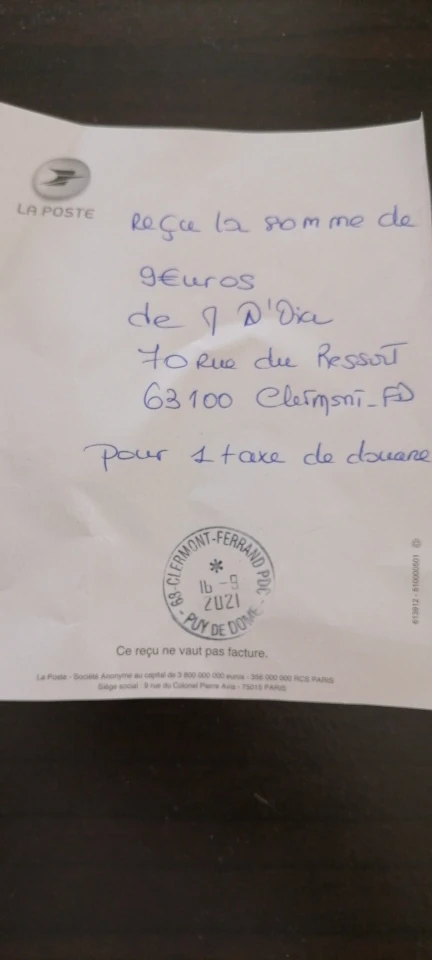 LA POSTE
Reçu la somme de
9Euros
de
70 Rue du Ressort
63100 Clermont-FD
pour 1 taxe de douane
63-CLERMONT-FERRAND PDC
*
16 -9
2021
- PUY DE DOME -
Ce reçu ne vaut pas facture.
La Poste - Société Anonyme au capital de 3 800 000 000 euros - 356 000 000 RCS PARIS
Siège social : 9 rue du Colonel Pierre Avia - 75015 PARIS